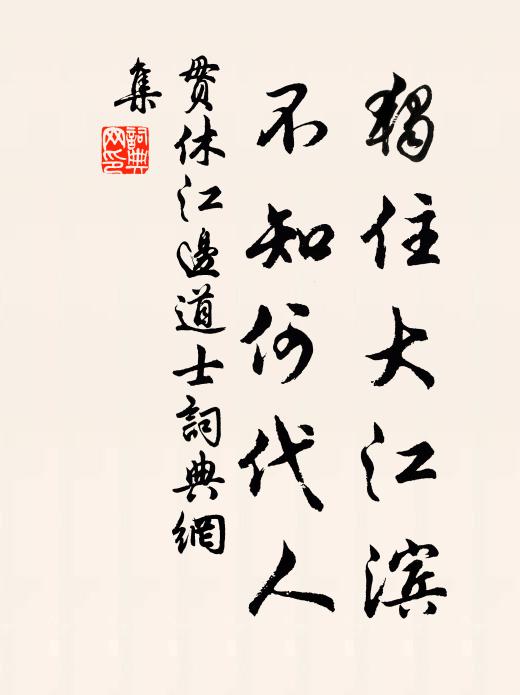 獨住大江滨
不知何代人
贯休江邊道士詞典網
集
詞典網印